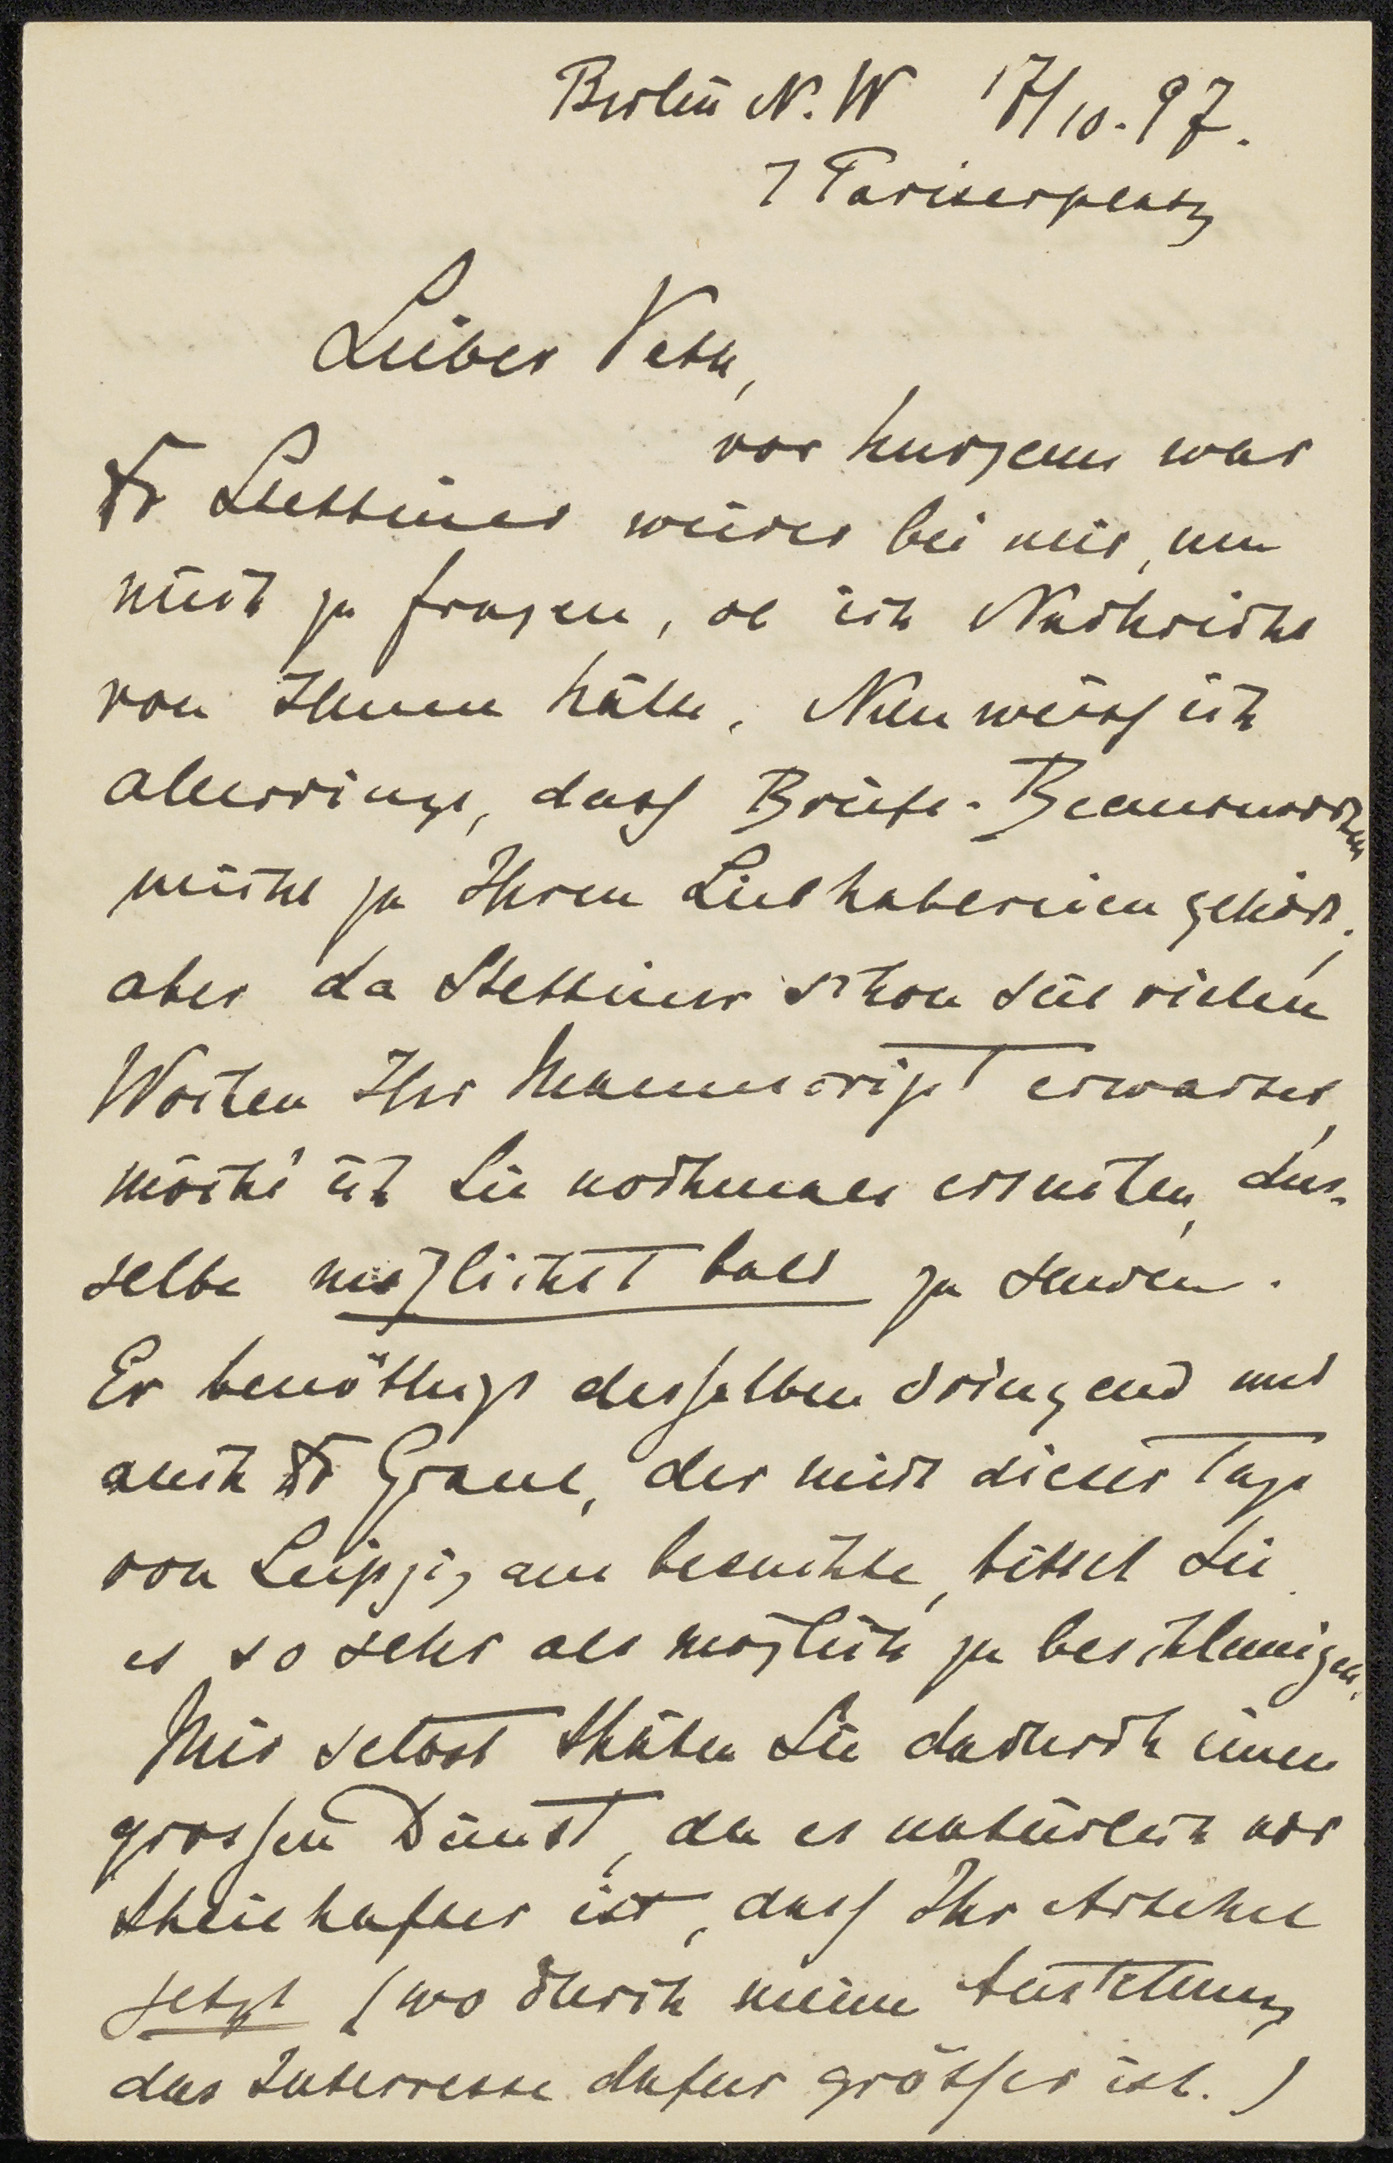 Berlin N.W 17/10.97.
7 Pariserplatz
Lieber Veth,
vor kurzem war
Dr Stettiner wieder bei mir, um
mich zu fragen, ob ich Nachricht
von Ihnen hätte. Nun weiss ich
allerdings, dass Briefe-Beantworten
nicht zu Ihren Liebhabereien gehört,
aber da Stettiner schon seit vielen
Wochen Ihr Manuscript erwartet,
möcht' ich Sie nochmals ersuchen, das-
selbe möglichst bald zu senden.
Er benöthigt desselben dringend und
auch Dr Graul, der mich dieser Tage
von Leipzig aus besuchte, bittet Sie
es so sehr als möglich zu beschleunigen.
Mir selbst thäten Sie dadurch einen
grossen Dienst, da es natürlich vor
theilhafter ist, dass Ihr Artikel
jetzt (wo durch meine Ausstellung
das Interresse dafür grösser ist.)